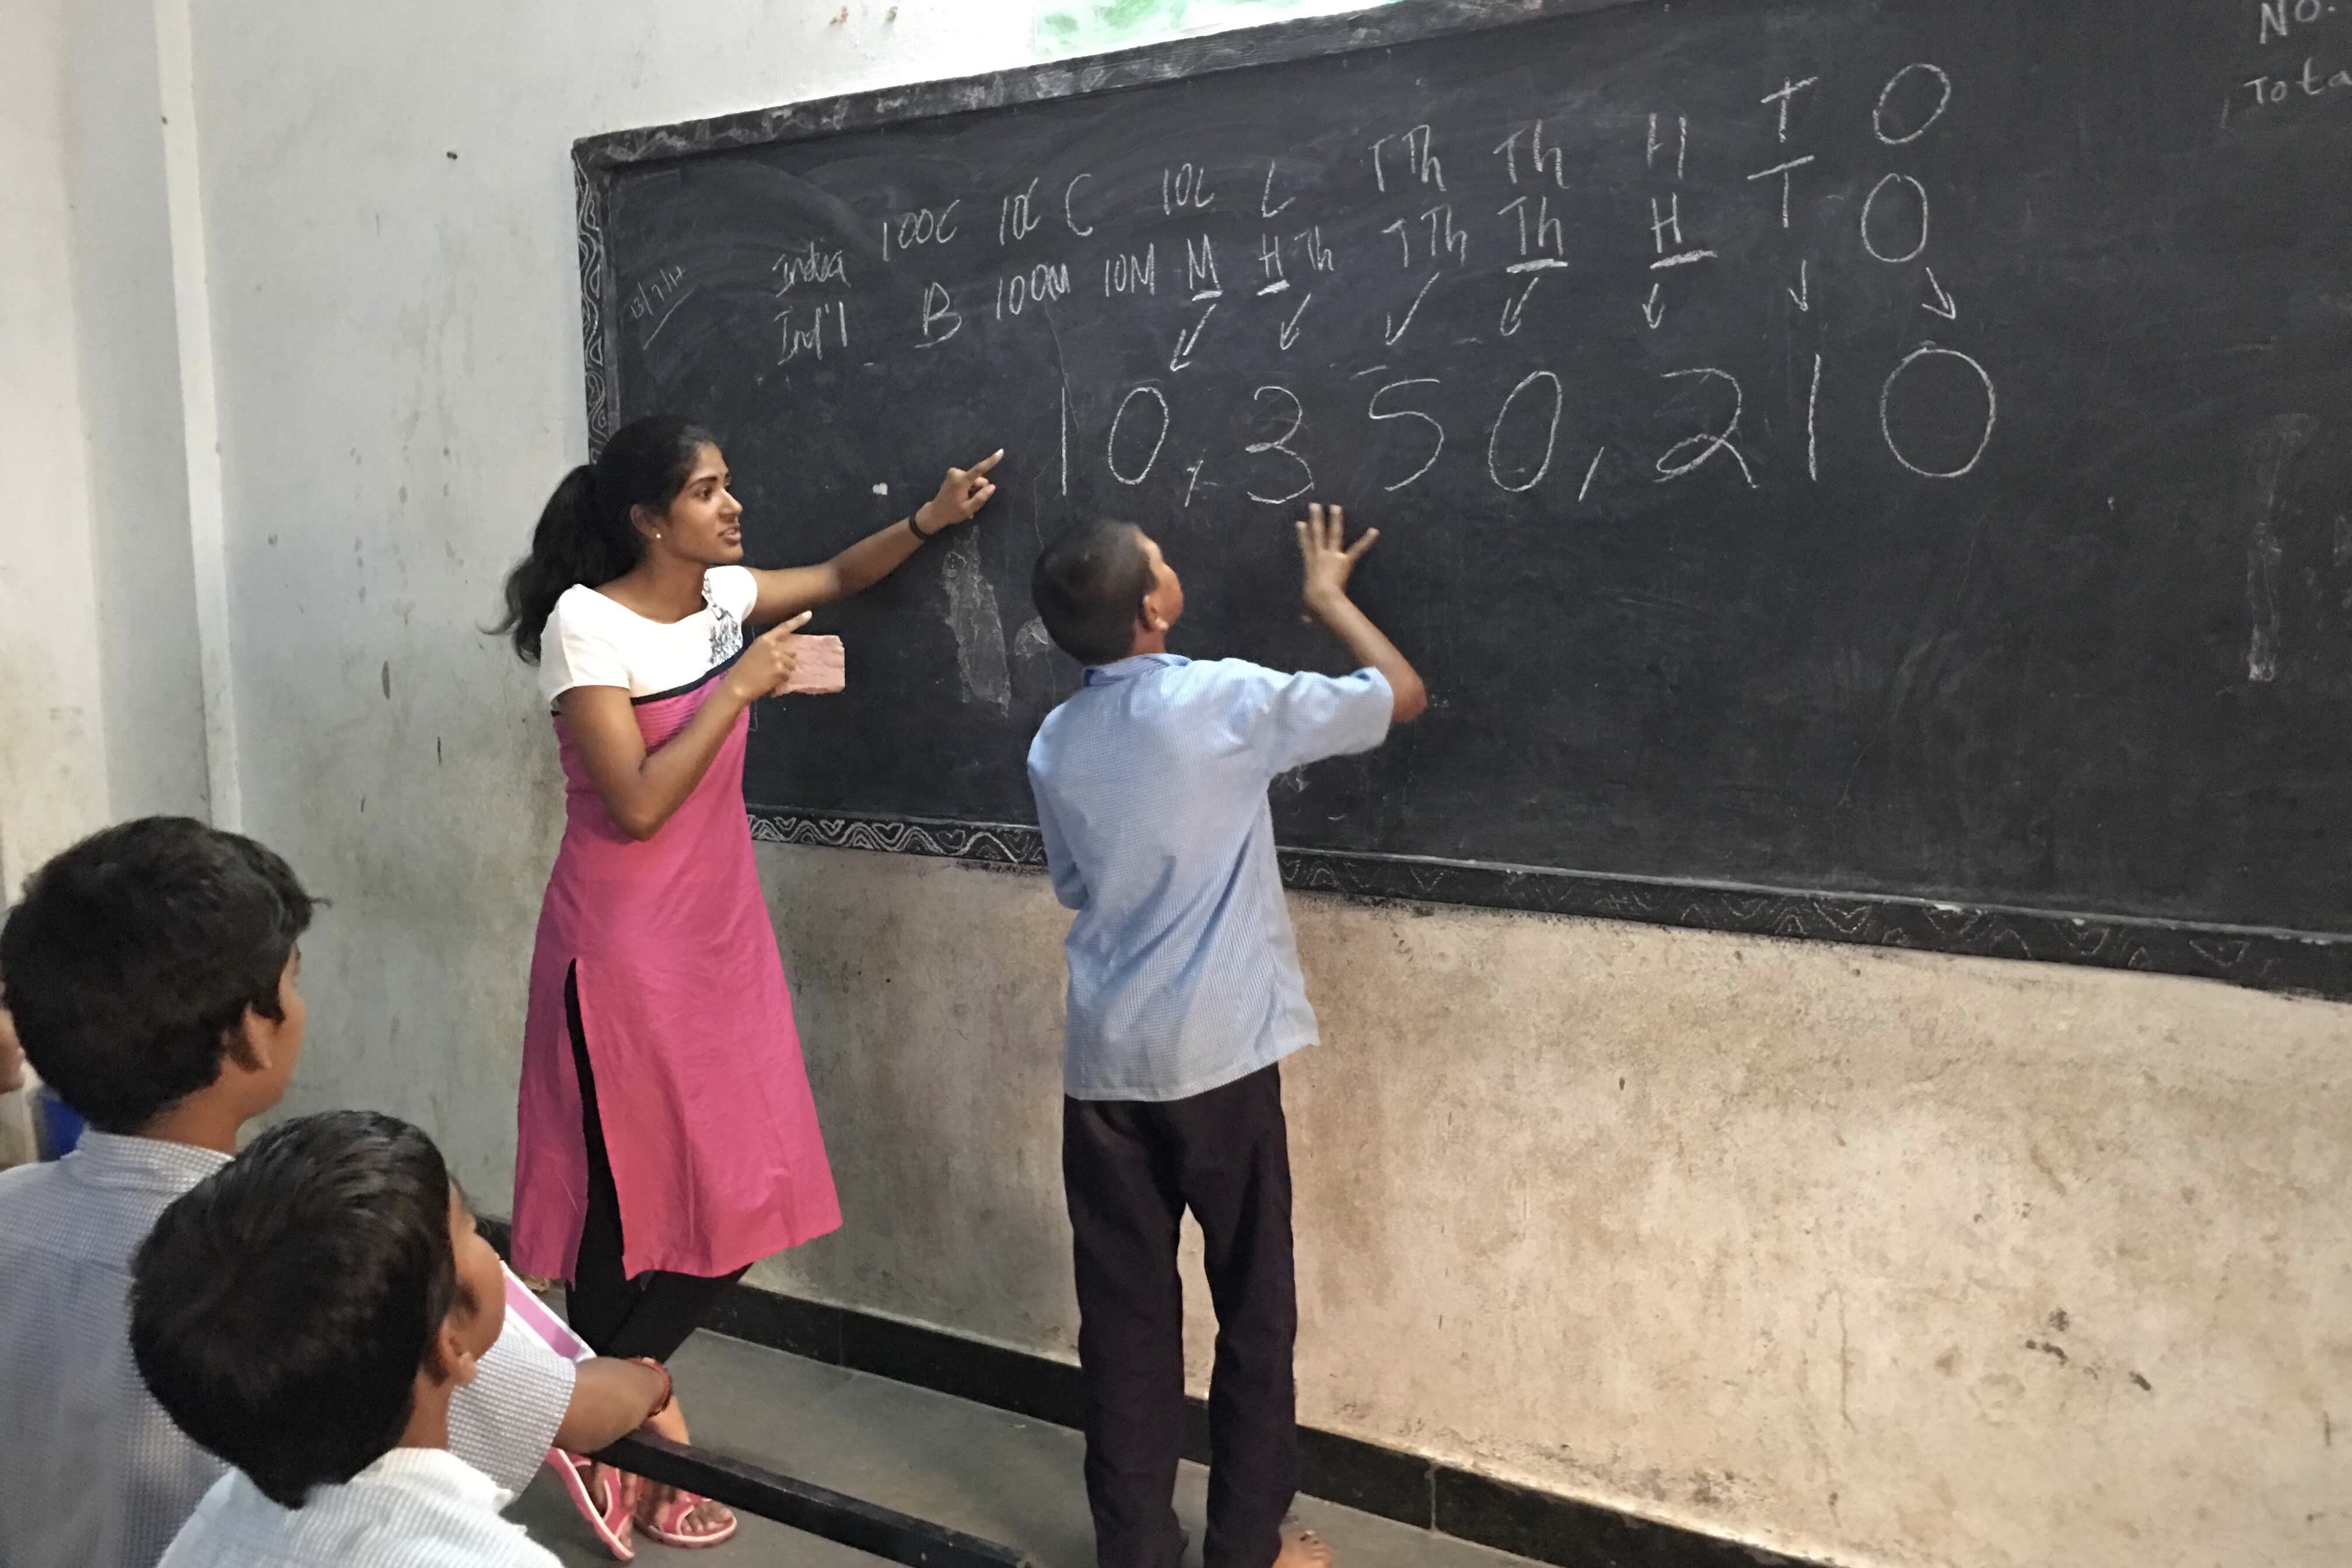 India 100C 10C C 10L L TTh Th H T O
Int'l B 100M 10M M H Th TTh Th H T O
10,350,210
No.